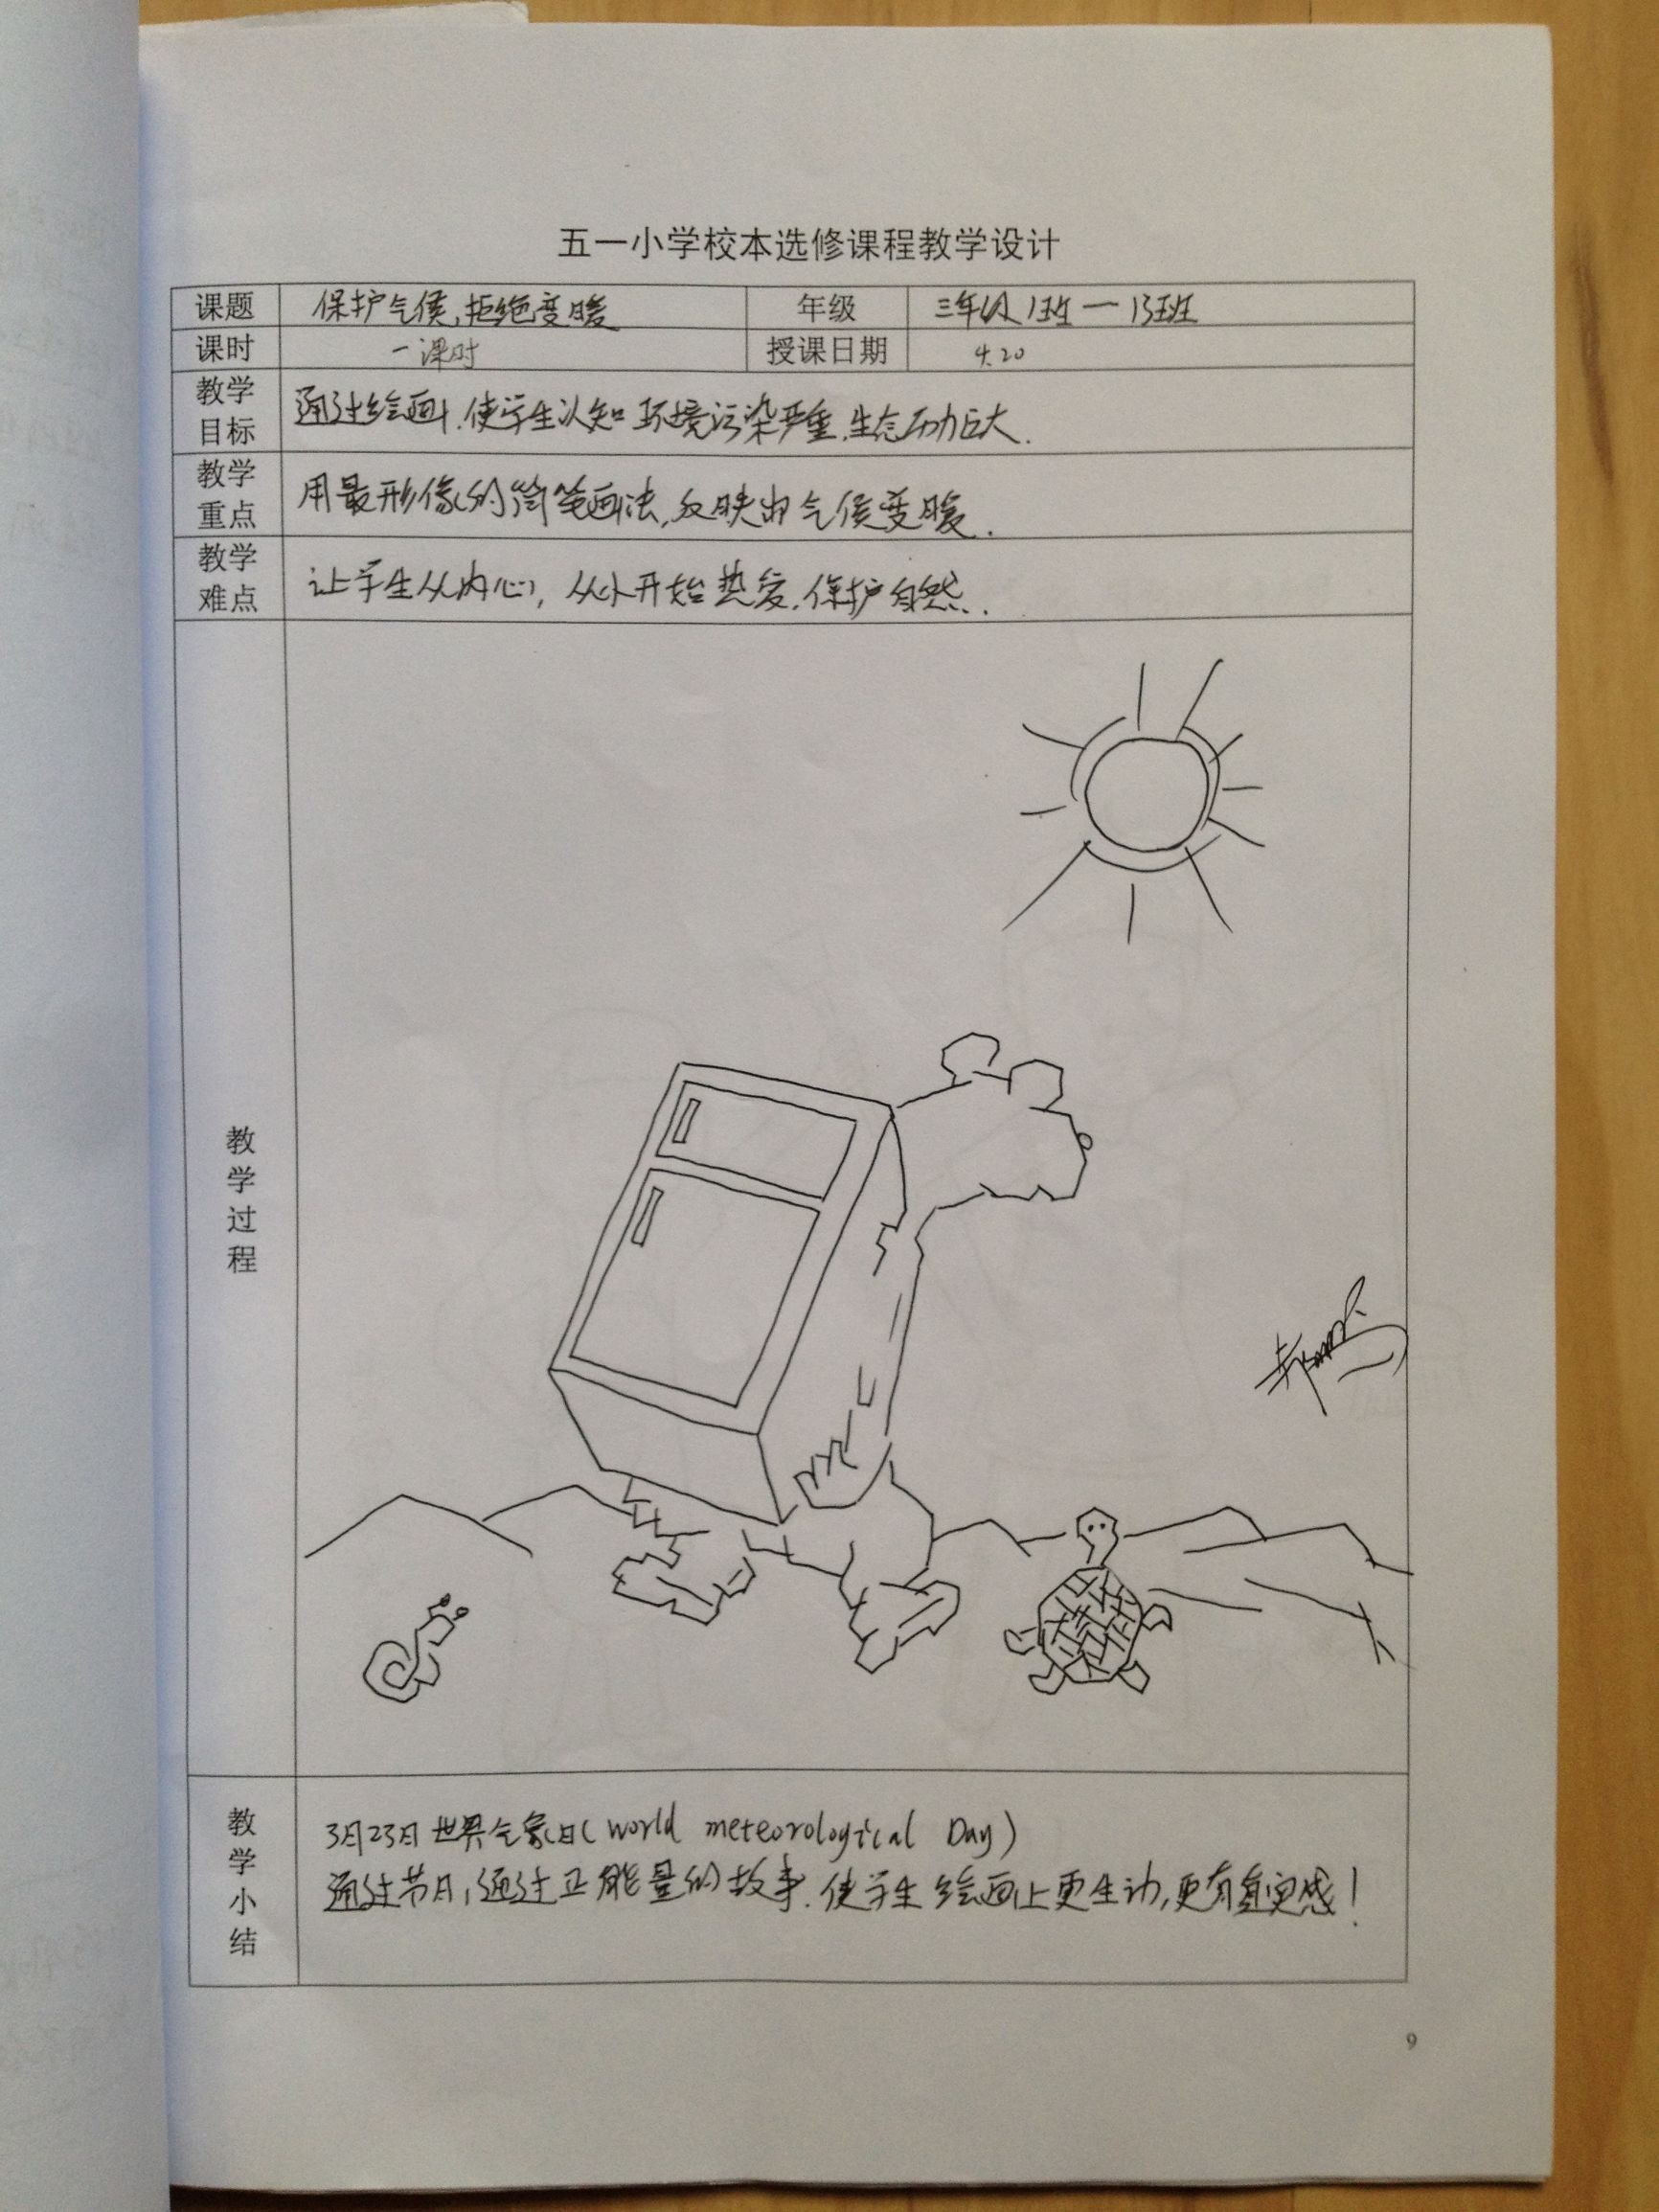 五一小学校本选修课程教学设计
课题 保护气候,拒绝变暖 年级 三年级 1班一13班
课时 一课时 授课日期 4.20
教学目标 通过绘画,使学生认知环境污染严重,生态压力巨大.
教学重点 用最形像的简笔画法,反映出气候变暖.
教学难点 让学生从内心,从小开始热爱.保护自然.
教学过程
教学小结
3月23日世界气象日(World meteorological Day)
通过节日,通过正能量的故事.使学生绘画上更生动,更有真实感!
9